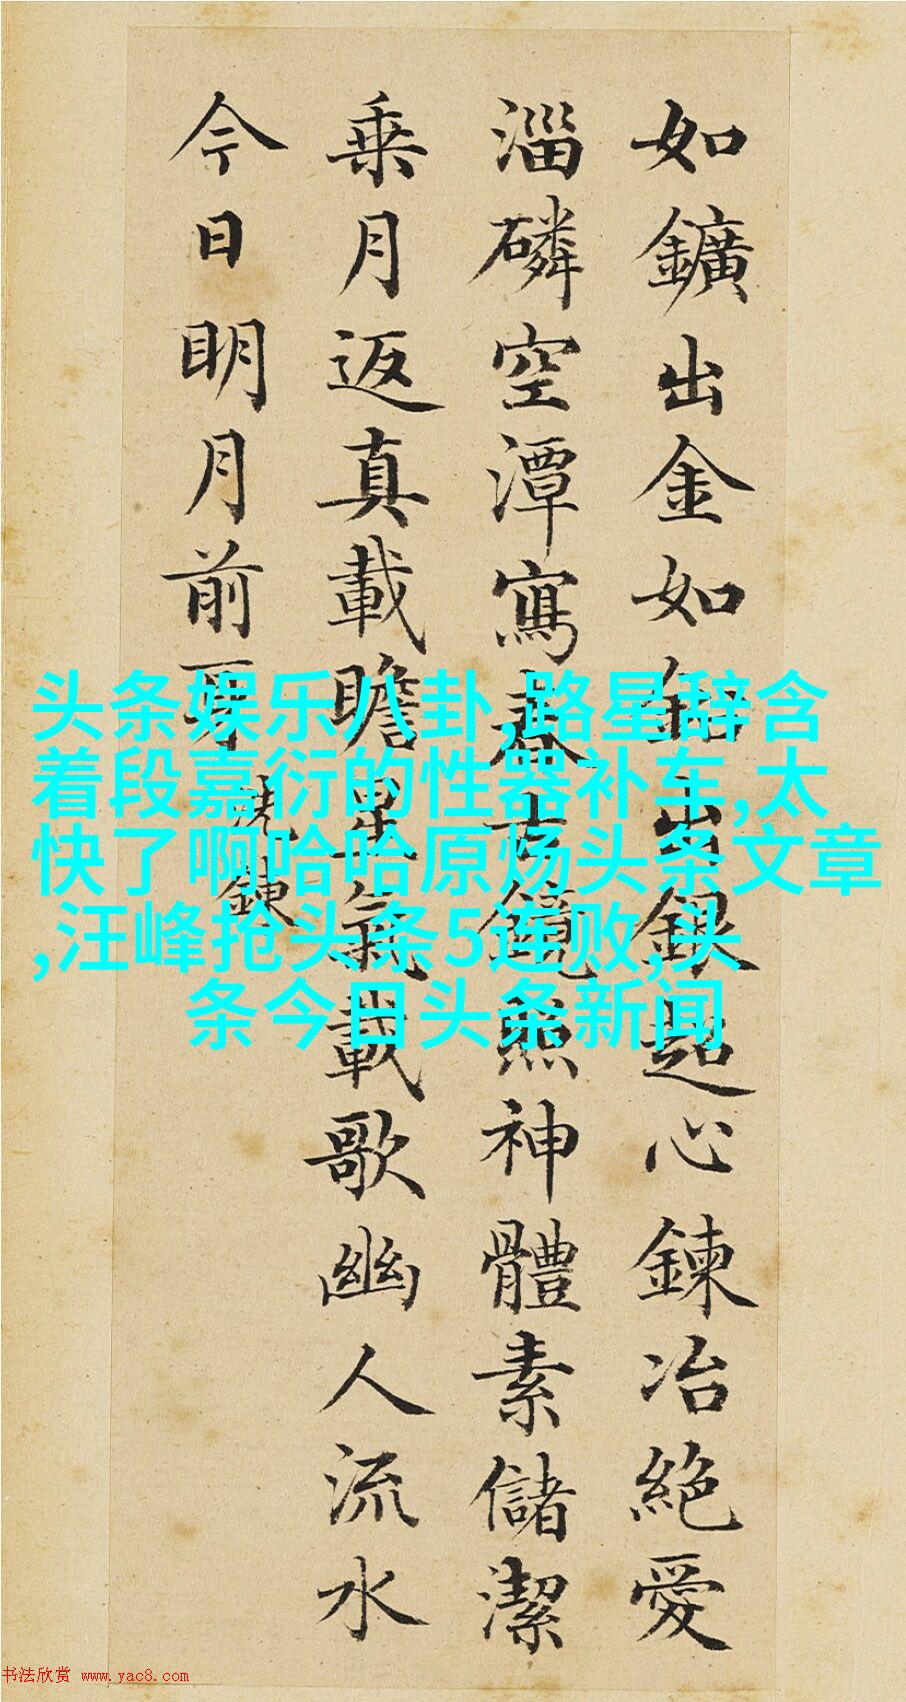 如鑛出金如鉛出銀超心鍊冶絕愛
淄磷空潭寫春古鏡照神體素儲潔
乗月返真載瞻星氣載歌幽人流水
今日明月前身
洗鍊
头条娱乐八卦,路星辞含
着段嘉衍的性器补车,太
快了啊哈哈原炀头条文章
,汪峰抢头条5连败,头
条今日头条新闻
书法欣赏 www.yac8.com